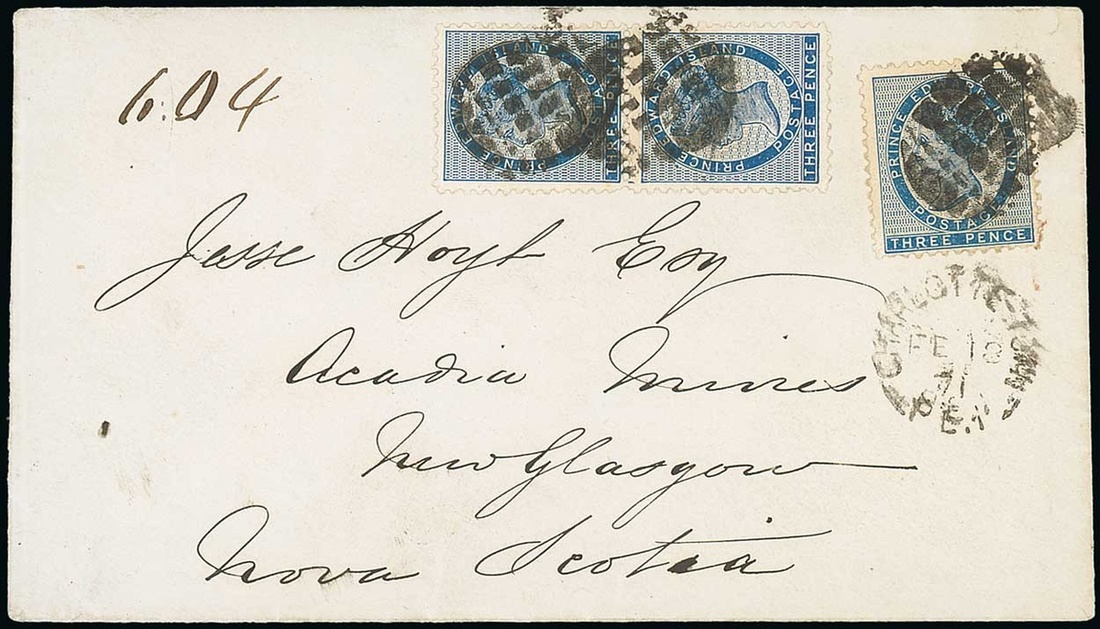 6.04
PRINCE EDWARD ISLAND
POSTAGE
THREE PENCE
PRINCE EDWARD ISLAND
POSTAGE
THREE PENCE
PRINCE EDWARD ISLAND
POSTAGE
THREE PENCE
Jesse Hoyt Esq
Acadia Mines
New Glasgow
Nova Scotia
CHARLOTTE-TOWN
FE 18
71
P.E.I.